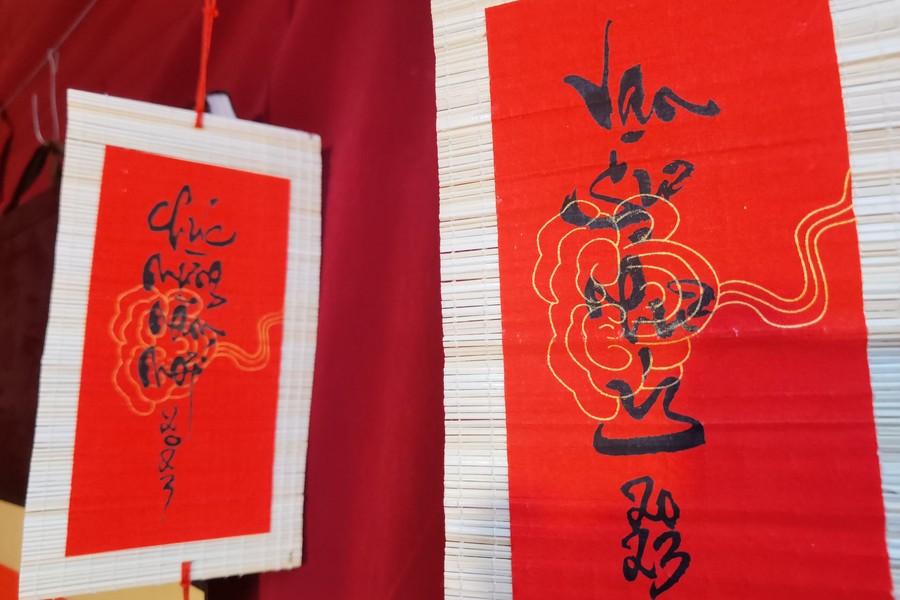 Chúc
Mừng
Năm
Mới
2023
Vạn
Sự
Như
Ý
2023